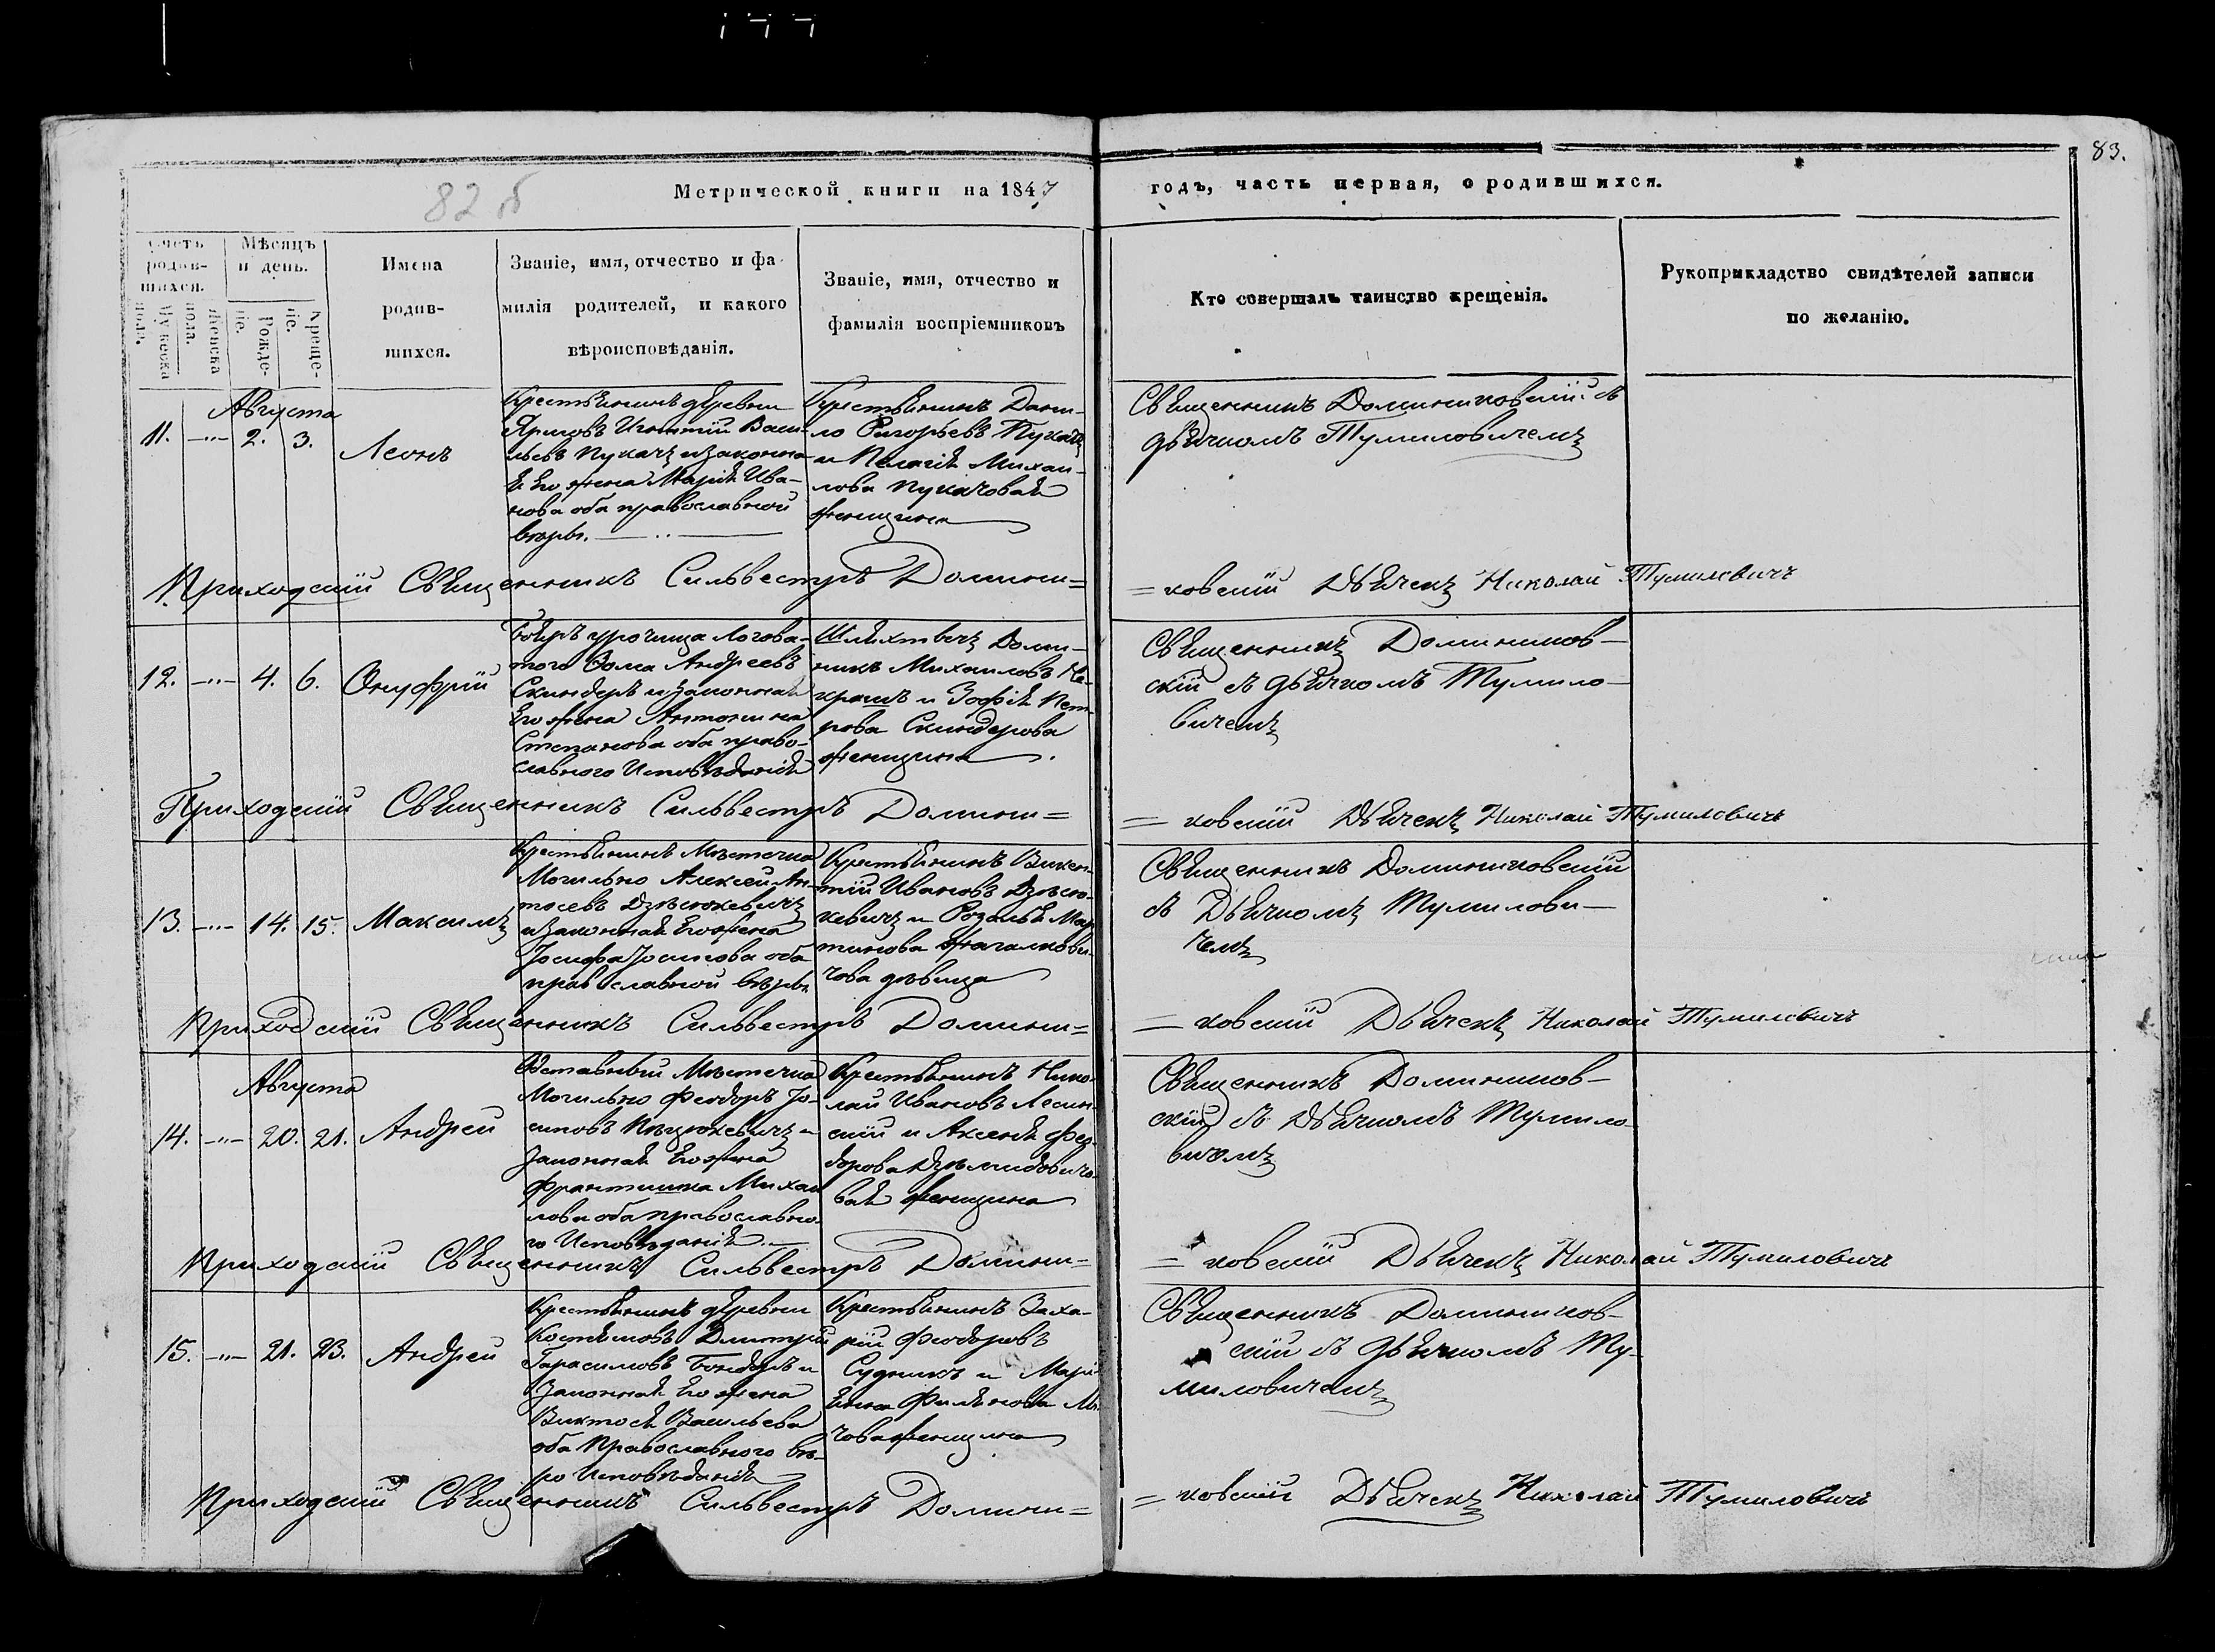 83.
82 б
Метрической книги на 1847
годъ, часть первая, о родившихся.
Счетъ родив-шихся.
Мужеска пола.
Женска пола.
Мѣсяцъ и день.
Рожде-ніе.
Креще-ніе.
Имена
родив-
шихся.
Званіе, имя, отчество и фа-
милія родителей, и какого
вѣроисповѣданія.
Званіе, имя, отчество и
фамилія воспріемниковъ
Кто совершалъ таинство крещенія.
Рукоприкладство свидѣтелей записи
по желанію.
Августа
11. -"- 2. 3.
Леонъ
Крестьянинъ деревни
Игнатій Васи-
льевъ Пукачъ и законна-
я его жена Марія Ива-
нова оба православной
вѣры.
Крестьянинъ Дани-
ло Ригорьевъ Пукачъ
и Пелагія Михаи-
лова Пукачовая
женщина
Священникъ Доминиковскій съ
дьячкомъ Тумиловичемъ
Приходскій Священникъ Сильвестръ Домини=
=ковскій Дьячекъ Николай Тумиловичъ
12. -"- 4. 6.
Онуфрій
урочища Логова-
того Ѳома Андреевъ
Скиндеръ и законная
его жена Антонина
Степанова оба право-
славного исповѣданія
Шляхтичъ Доми-
никъ Михаиловъ
и Зофія Пет-
рова Скиндерова
женщина.
Священникъ Домиников-
скій съ дьячкомъ Тумило-
вичемъ
Приходскій Священникъ Сильвестръ Домини=
=ковскій Дьячекъ Николай Тумиловичъ
13. -"- 14. 15.
Максимъ
Крестьянинъ Мѣстечка
Могильно Алексей Ан-
тосевъ
и законная его жена
Іосифа Іосифова оба
православной вѣры
Крестьянинъ Викен-
тій Ивановъ
и Розалія Мар-
тинова
чова дѣвица
Священникъ Доминиковскій
съ Дьячкомъ Тумилови-
чемъ
Приходскій Священникъ Сильвестръ Домини=
=ковскій Дьячекъ Николай Тумиловичъ
Августа
14. -"- 20. 21.
Андрей
Отставный Мѣстечка
Могильно Феодоръ Іо-
сифовъ и
законная его жена
Франтишка Михаи-
лова оба православно-
го исповѣданія
Крестьянинъ Нико-
лай Ивановъ Лесин-
скій и Аксенія Фео-
дорова
вая женщина
Священникъ Домиников-
скій съ Дьячкомъ Тумило-
вичемъ
Приходскій Священникъ Сильвестръ Домини=
=ковскій Дьячекъ Николай Тумиловичъ
15. -"- 21. 23.
Андрей
Крестьянинъ деревни
Костяшовъ Дмитрій
Гарасимовъ Бондаръ и
законная его жена
Виктося Васильева
оба Православного вѣ-
ро исповѣданія
Крестьянинъ Заха-
рій Феодоровъ
Судникъ и Марі-
яна
чова женщина
Священникъ Домиников-
скій съ дьячкомъ Ту-
миловичемъ
Приходскій Священникъ Сильвестръ Домини=
=ковскій Дьячекъ Николай Тумиловичъ